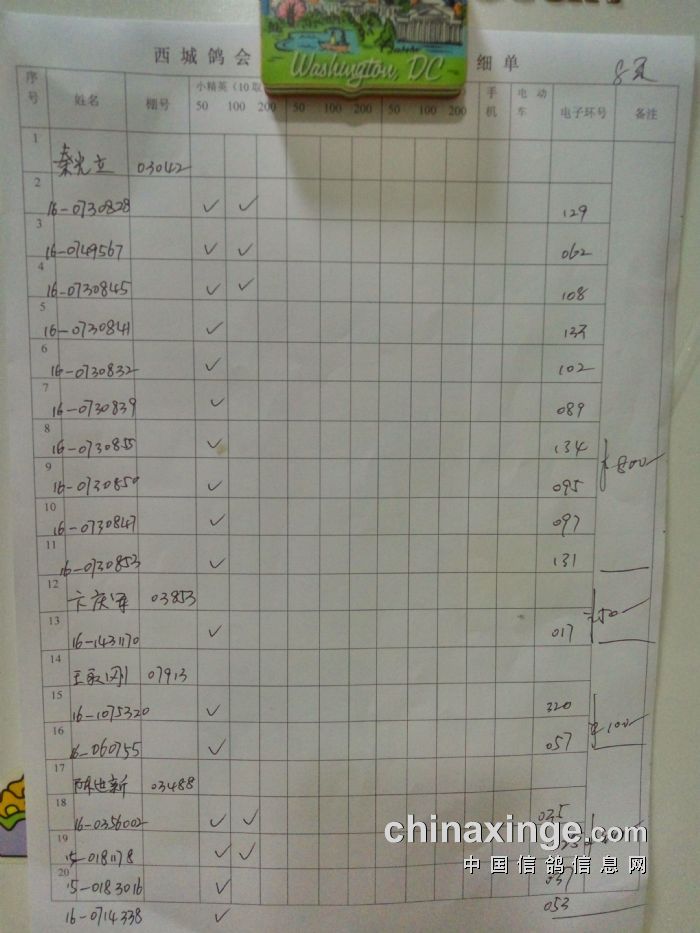 Washington, DC
西城鸽会 细单
8页
序号 姓名 棚号 小精英(10取 50 100 200 50 100 200 50 100 200 手机 电动车 电子环号 备注
1 秦光立 03042
2 16-0730828 ✓ ✓ 129
3 16-0749567 ✓ ✓ 062
4 16-0730845 ✓ ✓ 108
5 16-0730841 ✓
6 16-0730832 ✓ 102
7 16-0730839 ✓ 089
8 16-0730855 ✓ 134
800
9 16-0730850 ✓ 095
10 16-0730847 ✓ 097
11 16-0730853 ✓ 131
12 卞庆军 03853
50
13 16-1431170 ✓ 017
14 07913
15 16-1075320 ✓ 320
100
16 16-060755 ✓ 057
17 03488
18 16-0356002 ✓ ✓ 035
19 15-018178 ✓ ✓
20 15-0183016 ✓ 337
16-0714338 ✓ 053
chinaxinge.com
中国信鸽信息网